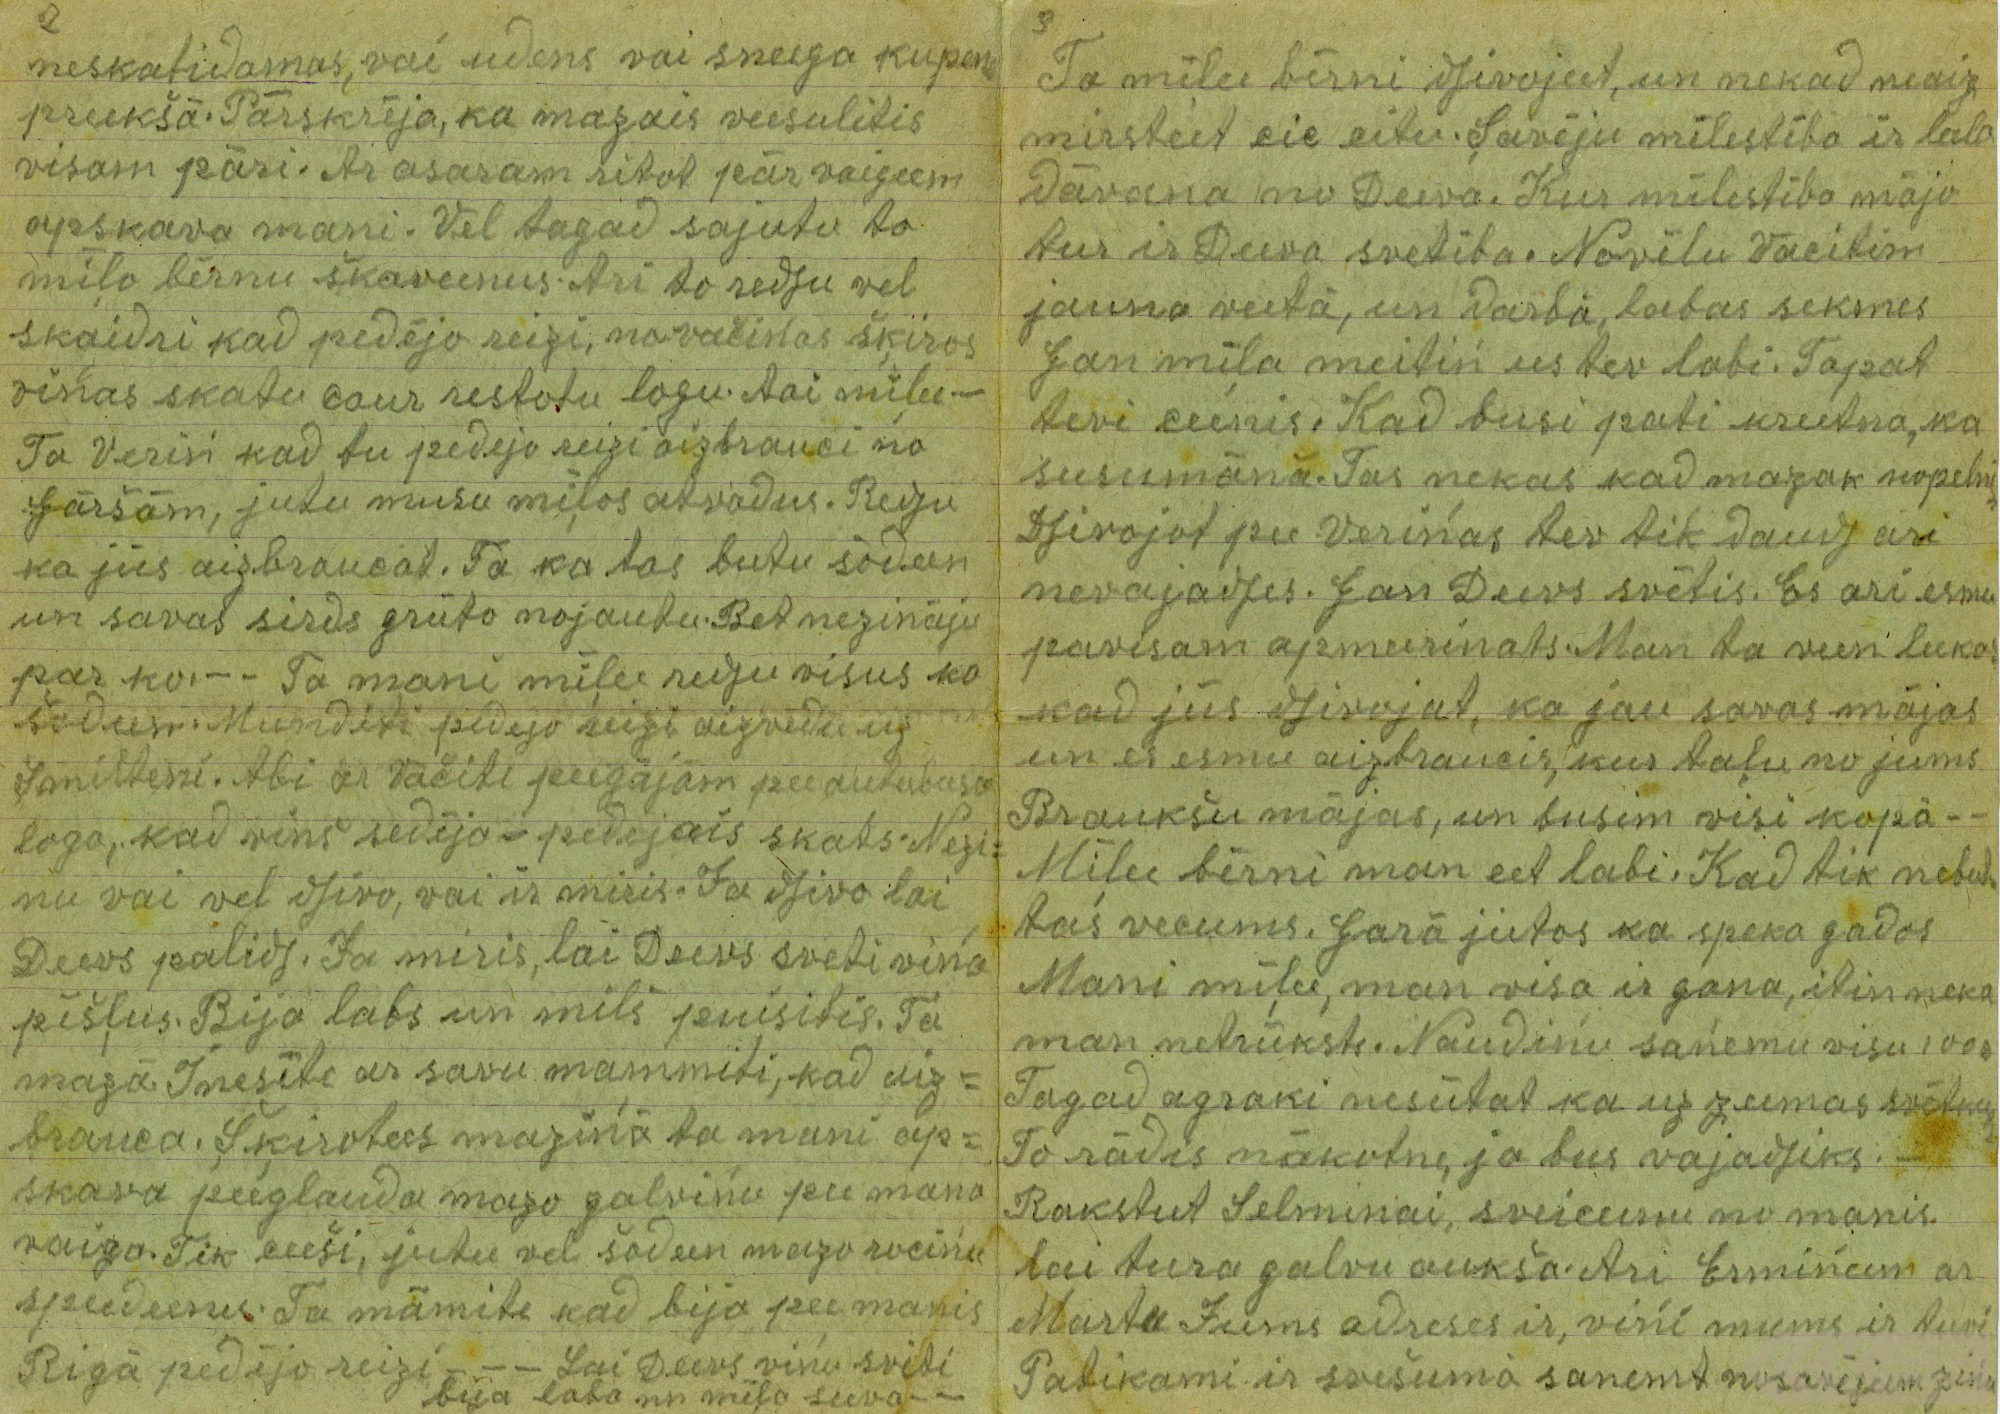 2
neskatidamas, vai udens vai sneega kupen
preekšā. Pārskrēja, ka mazais veesulitis
visam pāri. Ar asaram ritot pār vaigeem
apskava mani. Vēl tagad sajutu to
mīļo bērnu skaveenus. Ari to redsu vel
skaidri kad pedējo reizi, no vačiņas šķiros
viņas skatu caur restotu logu. Aai mīļee —
Ta Veriņ kad tu pedejo reizi aizbrauci no
Gāršām, jutu musu mīļos atvadus. Redzu
ka jūs aizbraucat. Ta ka tas butu šodeen
un savas sirds grūto nojautu. Bet nezinaju
par ko. -- Ta mani mīļee redzu visus ka
šodeen. Munditi pedejo reizi aizvedu uz
Smilteni. Abi ar Vačiti peegājām pee autobusa
loga, kad viņš sedēja – pedejais skats. Nezi=
nu vai vel dsivo, vai ir miris. Ja dsivo lai
Deevs palids. Ja miris, lai Deevs sveti viņa
pīšļus. Bija labs un mīļš puisitis. Ta
mazā Inesīte ar savu mammiti, kad aiz=
brauca. Šķirotees maziņā ta mani ap=
skava peeglauda mazo galviņu pee mana
vaiga. Tik ceeši, jutu vel šodeen mazo rociņu
speedeenu. Ta māmite kad bija pee manis
Rigā pedējo reizi --- Lai Deevs viņu svēti
bija laba un mīļa seeva --
3
Ta mīļee bērni dsivojeet, un nekad neaiz
mirsteet cic citu. Savēju mīlestība ir laba
dāvana no Deeva. Kur mīlestība mājo
tur ir Deeva svetiba. Novēlu Vacitim
jauna veetā, un darbā, labas sekmes
Gan mīļa meitiņ ees tev labi. Tapat
tevi ceenis. Kad busi pati kreetna, ka
susumānā. Tas nekas kad mazak nopelni=
Dsivojot pee Veriņas tev tik dauds ari
nevajadses. Gan Deevs svētis. Es ari esmu
pavisam apmeerinats. Man ta veen leekas
kad jūs dsivojat, ka jau savas mājas
un es esmu aizbraucis, kur taļu no jums
Braukšu mājas, un busim visi kopā --
Mīļee bērni man eet labi. Kad tik nebutu
tas vecums. Garā jutos ka speka gados
Mani mīļee, man visa ir gana, itin neka
man netrūkst. Naudiņu saņemu visu 1000
Tagad agraki nesūtat ka uz zeemas svētkeem
To rādis nākotne, ja bus vajadsiks. –
Rakstut Selminai, sveiceenu no manis.
lai tura galvu aukša. Ari Ermiņam ar
Martu Jums adreses ir, viņi mums ir tuvi
Patikami ir svešumā saņemt no savējeem ziņu